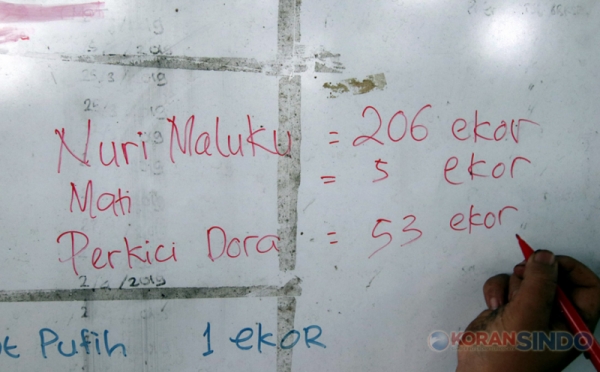 25/3/2019
Nuri Maluku = 206 ekor
Mati = 5 ekor
Perkici Dora = 53 ekor
Putih 1 ekor
KORANSINDO